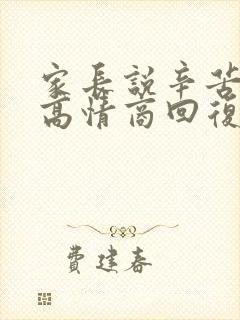 家長說辛苦
高情商回復
費建春